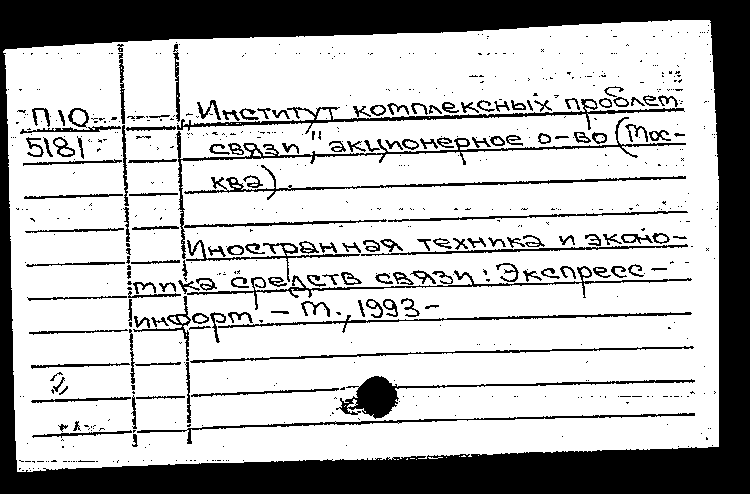 П10
5181
„Институт комплексных проблем
связи", акционерное о-во (Мос-
ква).
Иностранная техника и эконо-
мика средств связи: Экспресс-
информ. – М., 1993 –
2